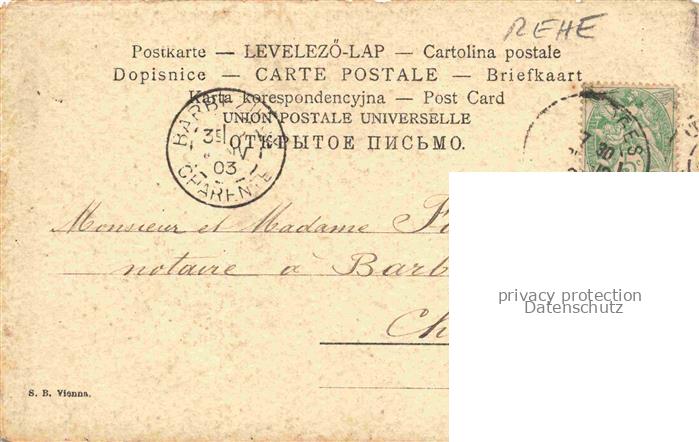 REHE
Postkarte — LEVELEZŐ-LAP — Cartolina postale
Dopisnice — CARTE POSTALE — Briefkaart
Karta korespondencyjna — Post Card
UNION POSTALE UNIVERSELLE
ОТКРЫТОЕ ПИСЬМО.
03
CHARENTE
Monsieur et Madame
notaire à Barb
Ch
privacy protection
Datenschutz
S. B. Vienna.